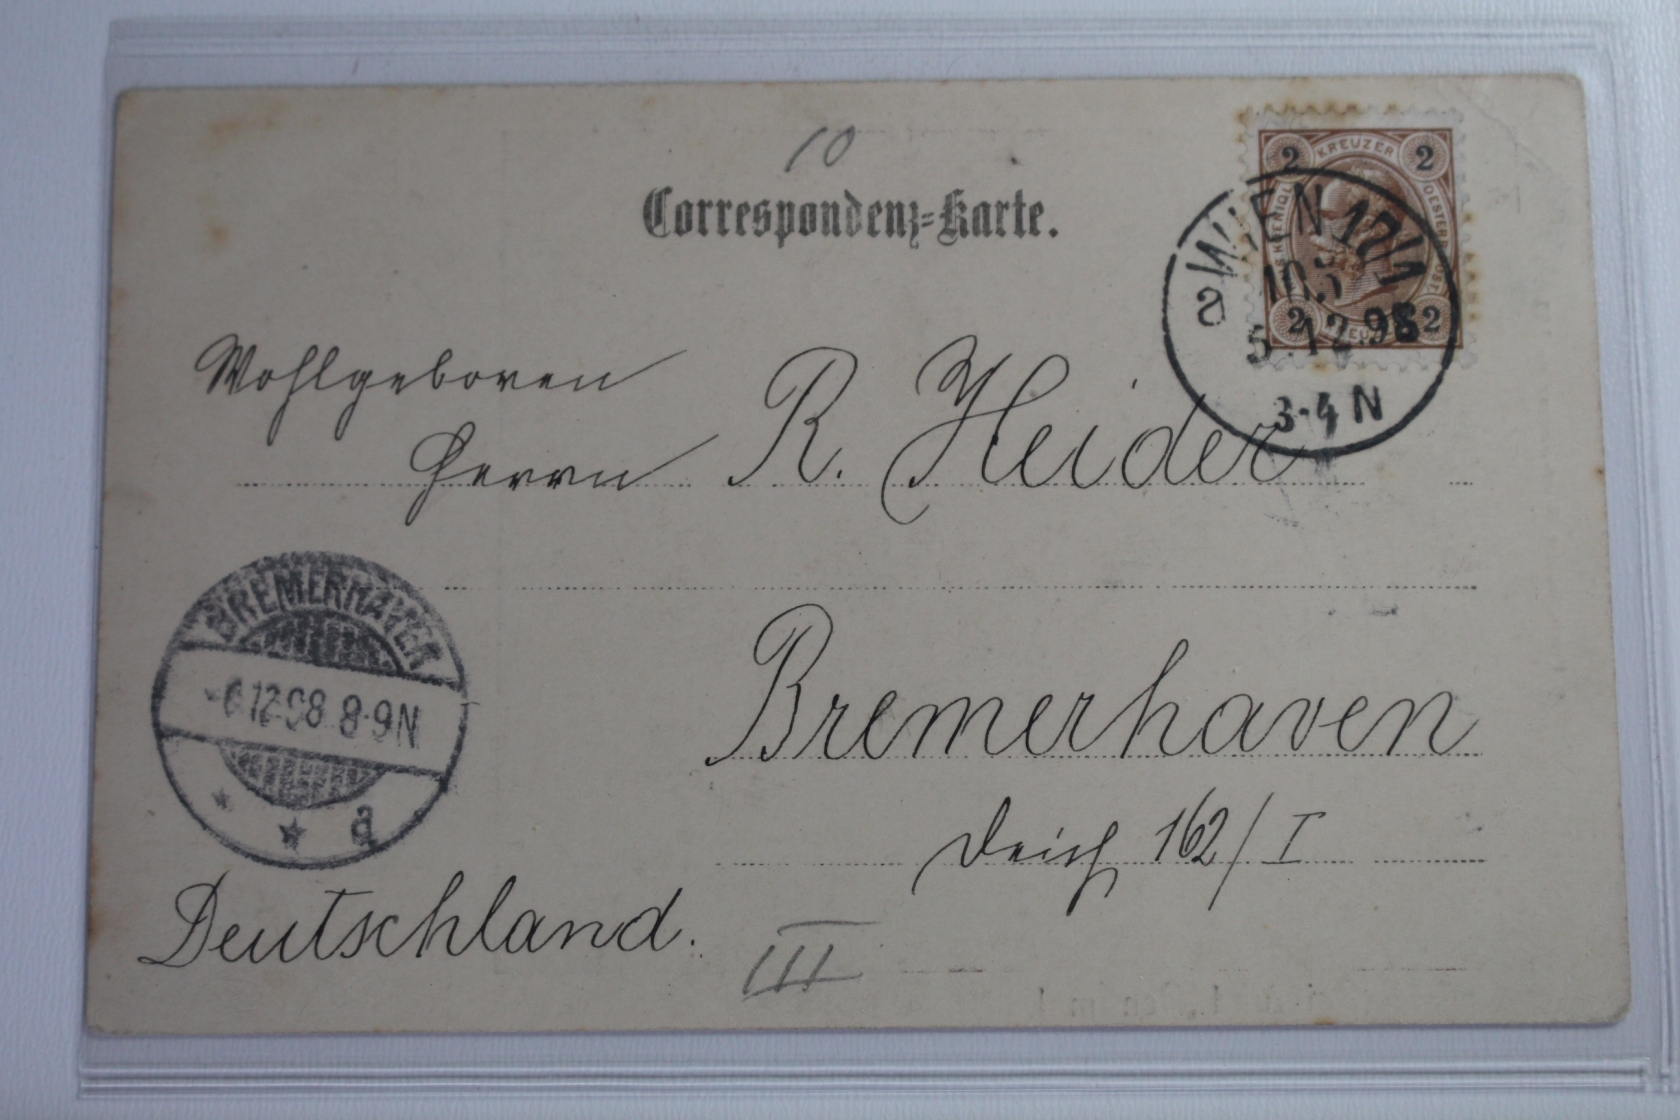 10
Correspondenz-Karte.
2 KREUZER 2
WIEN 17/1
10.5
5.12.98
3-4 N
a
2 2
Wohlgeboren
Herrn R. Heider
BREMERHAVEN
-6 12 98 8-9N
* * a
Bremerhaven
Deich 162/I
Deutschland.
III